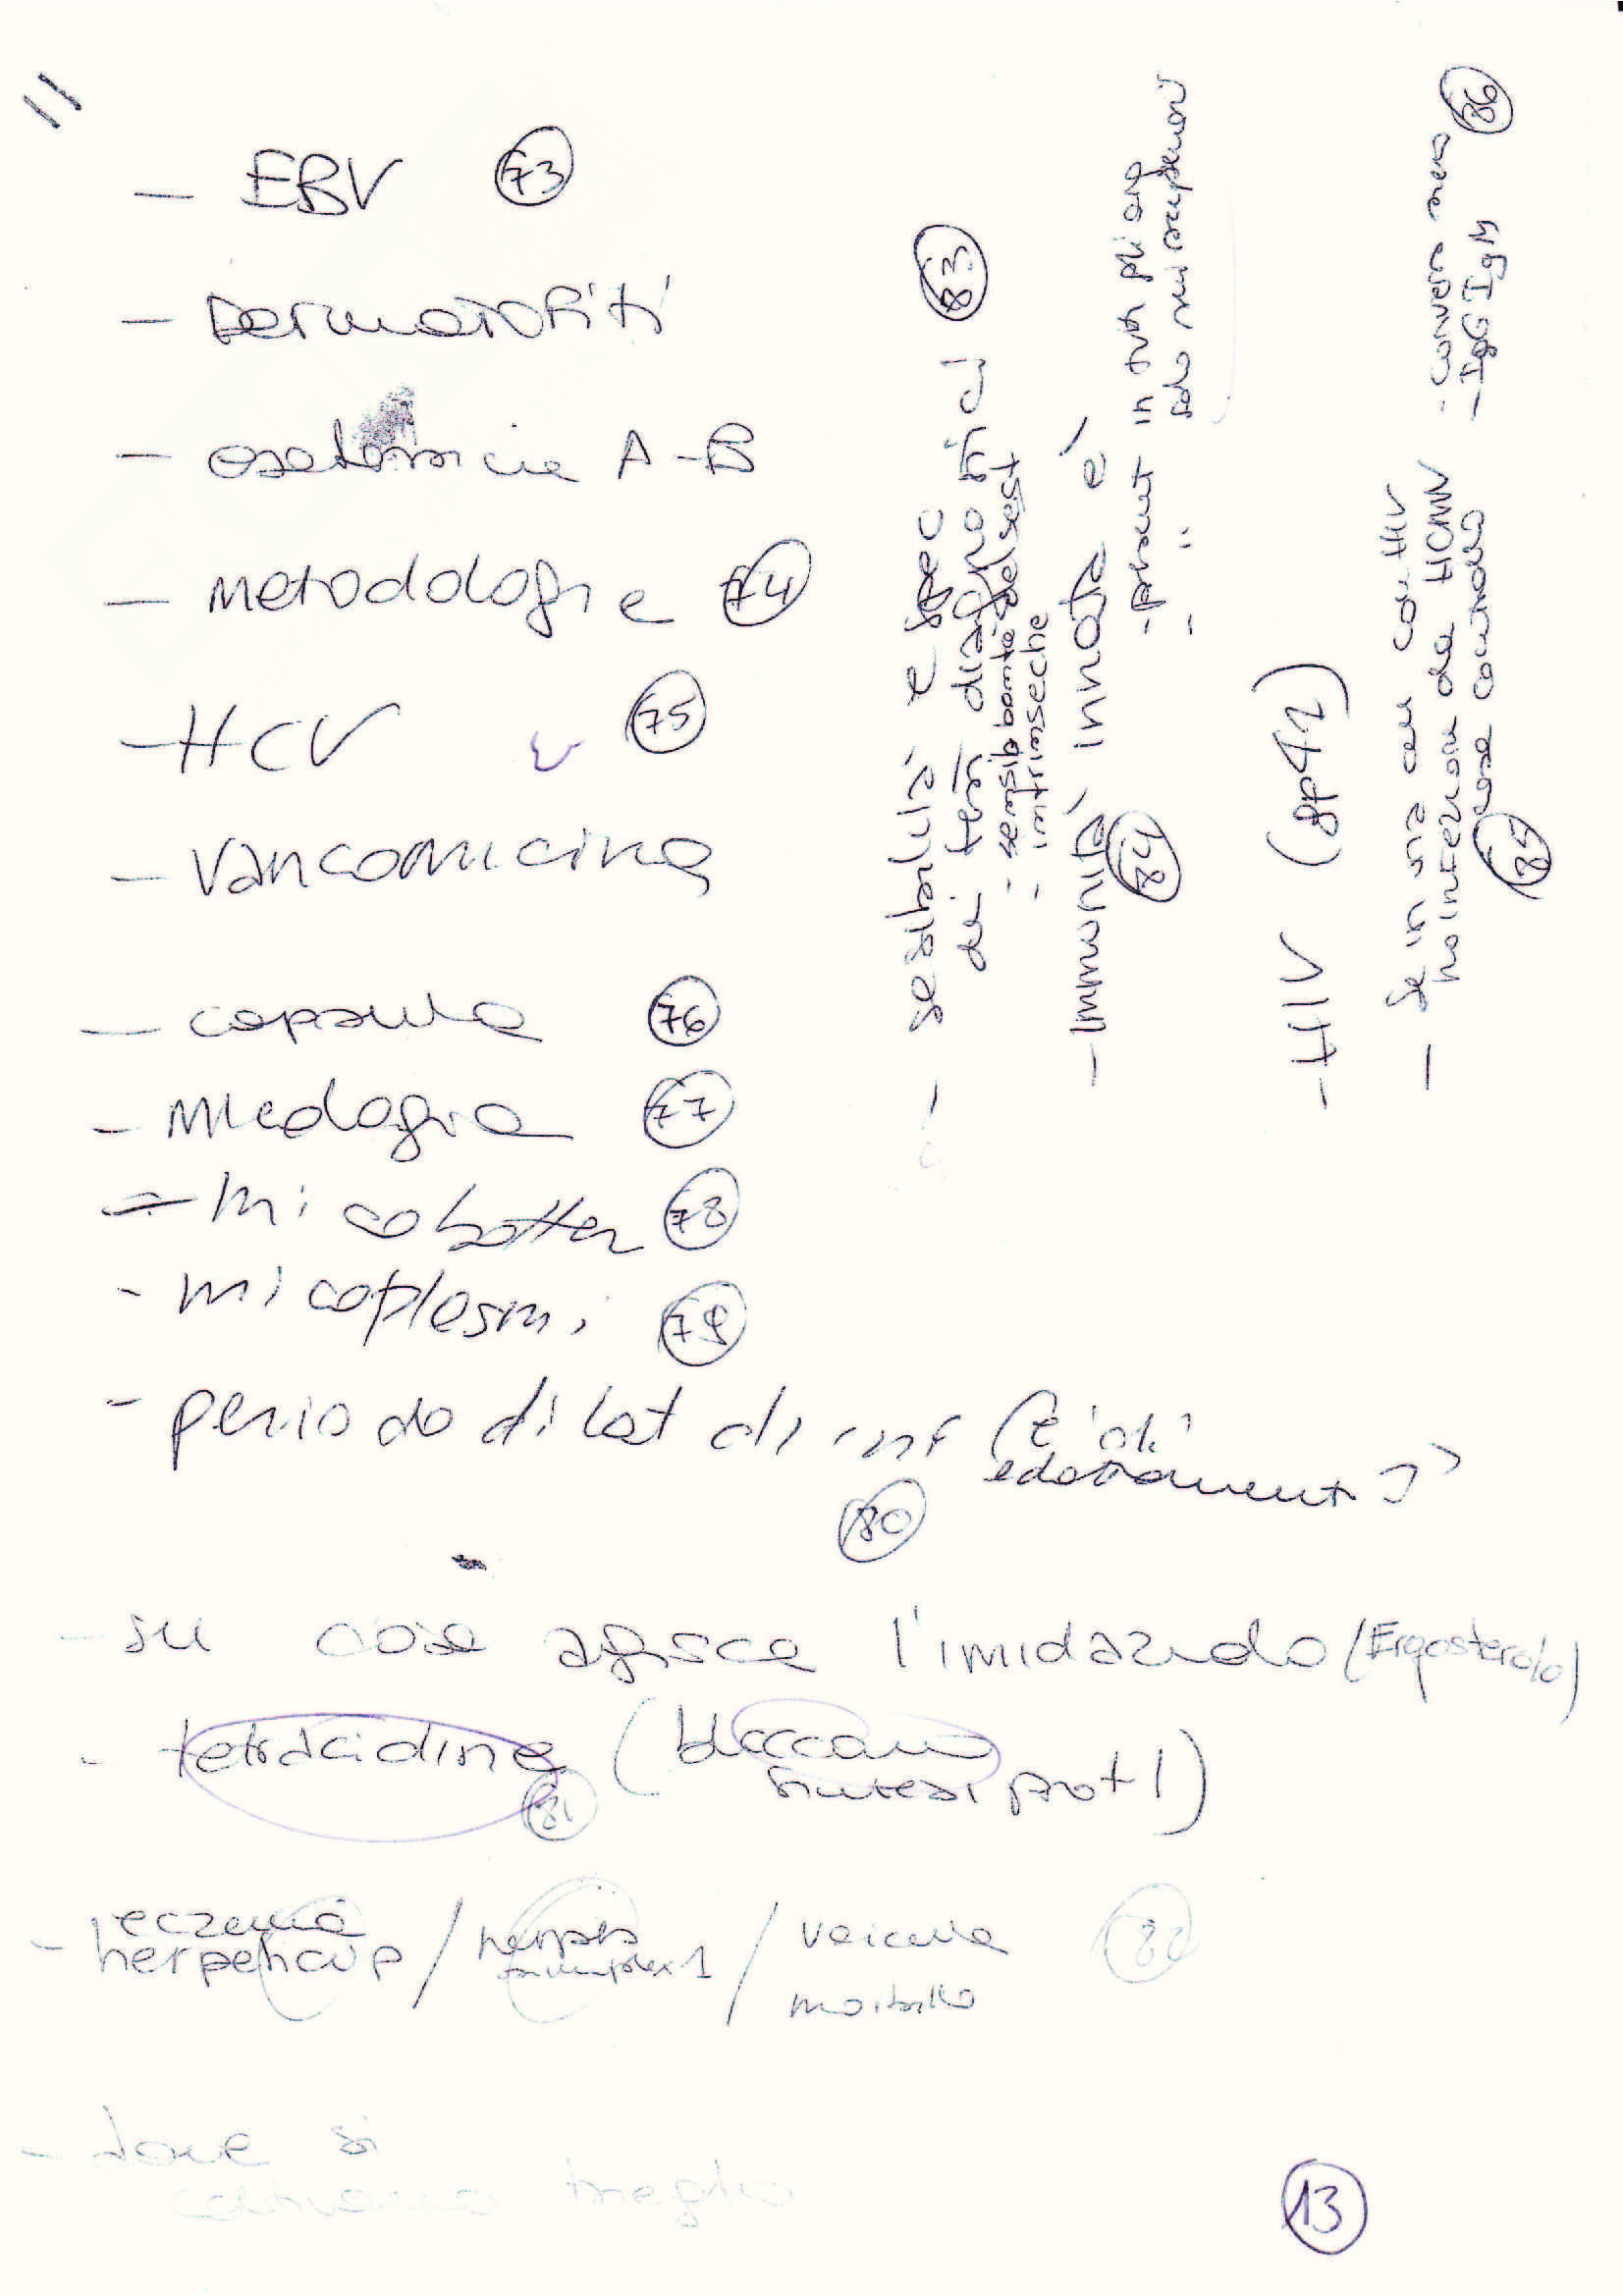 11
- EBV 73
- Dermatofiti
- A-B
- Metodologie 74
- HCV 75
- Vancomicina
- capsula 76
- Micologia 77
- micobatter 78
- micoplasmi 79
- periodo di lat di inf (è di
edattamento)
80
- su cosa agisce l'imidazolo (Ergosterolo)
- tetracicline (bloccano
sintesi prot)
81
- eczema
herpeticup / herpes
simplex 1 / 82
morbillo
- dove si
coltivano meglio
13
- sesibilità e spec
dei test diagnostici 83
- intrinseche
- Immunità innata è
84
- present in tutti gli org
- " solo nei
- HIV (gp41)
- se in una con HIV
ho infezione da HCMV
cosa
85
-
- IgG IgM
86